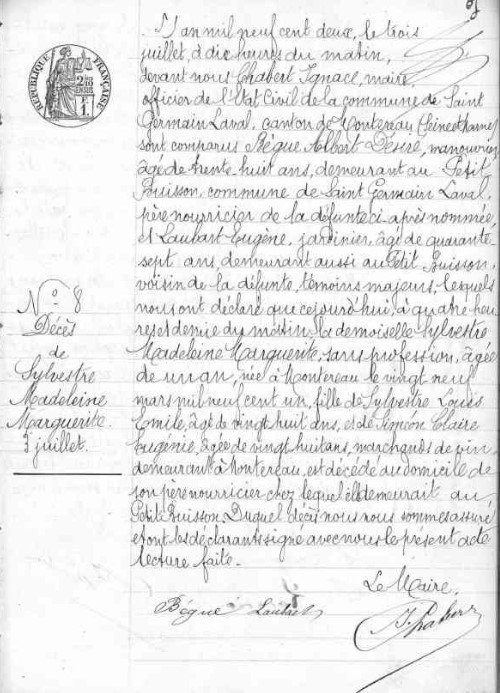 RÉPUBLIQUE FRANÇAISE
L'an mil neuf cent deux, le trois
juillet, à dix heures du matin,
devant nous Chabert Ignace, maire,
officier de l'Etat Civil de la commune de Saint
Germain Laval, canton de Montereau (Seine et Marne)
sont comparus Bégue Albert Désiré, manouvrier
âgé de trente huit ans, demeurant au Petit
Buisson, commune de Saint Germain Laval,
père nourricier de la défunte ci après nommée,
et Lautart Eugène, jardinier, âgé de quarante
sept ans, demeurant aussi au Petit Buisson,
voisin de la défunte, témoins majeurs, lesquels
nous ont déclaré que cejourd'hui, à quatre heu
res et demie du matin, la demoiselle Sylvestre
Madeleine Marguerite, sans profession, âgée
de un an, née à Montereau le vingt neuf
mars mil neuf cent un, fille de Sylvestre Louis
Emile, âgé de vingt huit ans, et de Simon Claire
Eugénie, âgée de vingt huit ans, marchands de vin
demeurant à Montereau, est décédé au domicile de
son père nourricier chez lequel elle demeurait au
Petit Buisson. Duquel décès nous nous sommes assuré
et ont les déclarants signé avec nous le présent acte
lecture faite.
N° 8
Décès
de
Sylvestre
Madeleine
Marguerite.
3 juillet.
Le Maire,
Bégue
I. Chabert